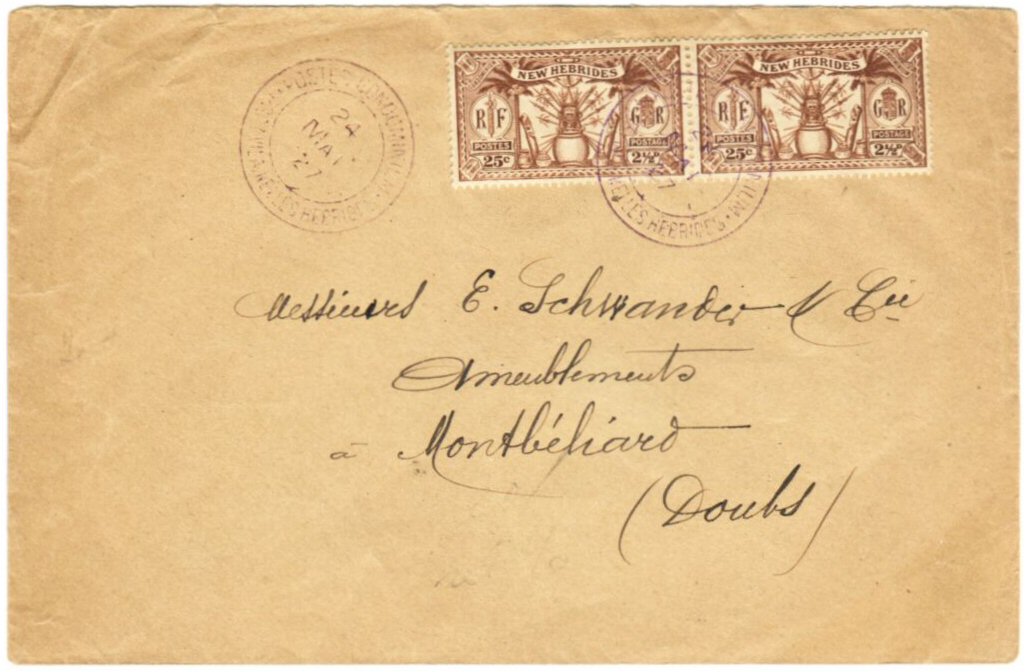 NEW HEBRIDES
RF
GR
POSTES
POSTAGE
25c
2½D
NEW HEBRIDES
RF
GR
POSTES
POSTAGE
25c
2½D
24
MAI
27
HEBRIDES
Messieurs E. Schwander & Cie
Ameublements
à Montbéliard
(Doubs)